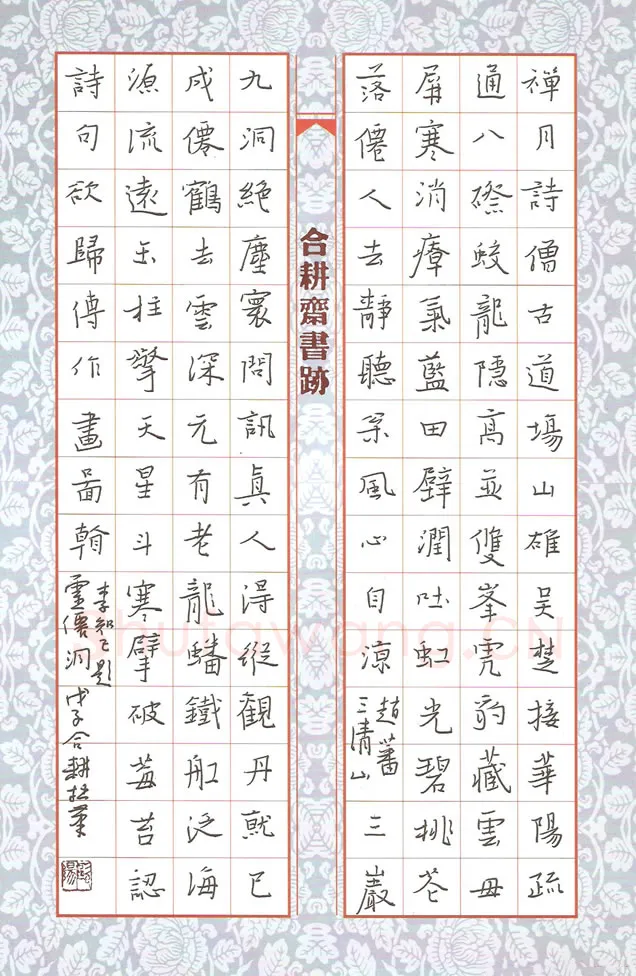 禪月詩僧古道場山雄吴楚接華陽疏
通八磜蛟龍隱高並雙峯虎豹藏雲毋
屏寒消瘴氣藍田璧潤吐虹光碧桃花
落僊人去靜聽枀風心自涼
趙蕃
三清山
三巖
合耕齋書跡
九洞絶塵寰問訊眞人得縱觀丹就已
成僊鶴去雲深元有老龍蟠鐵船泛海
源流遠玉柱擎天星斗寒擘破莓苔認
詩句欲歸傳作畫啚
李知己題
靈僊洞 戊子合耕
shufawang.cn